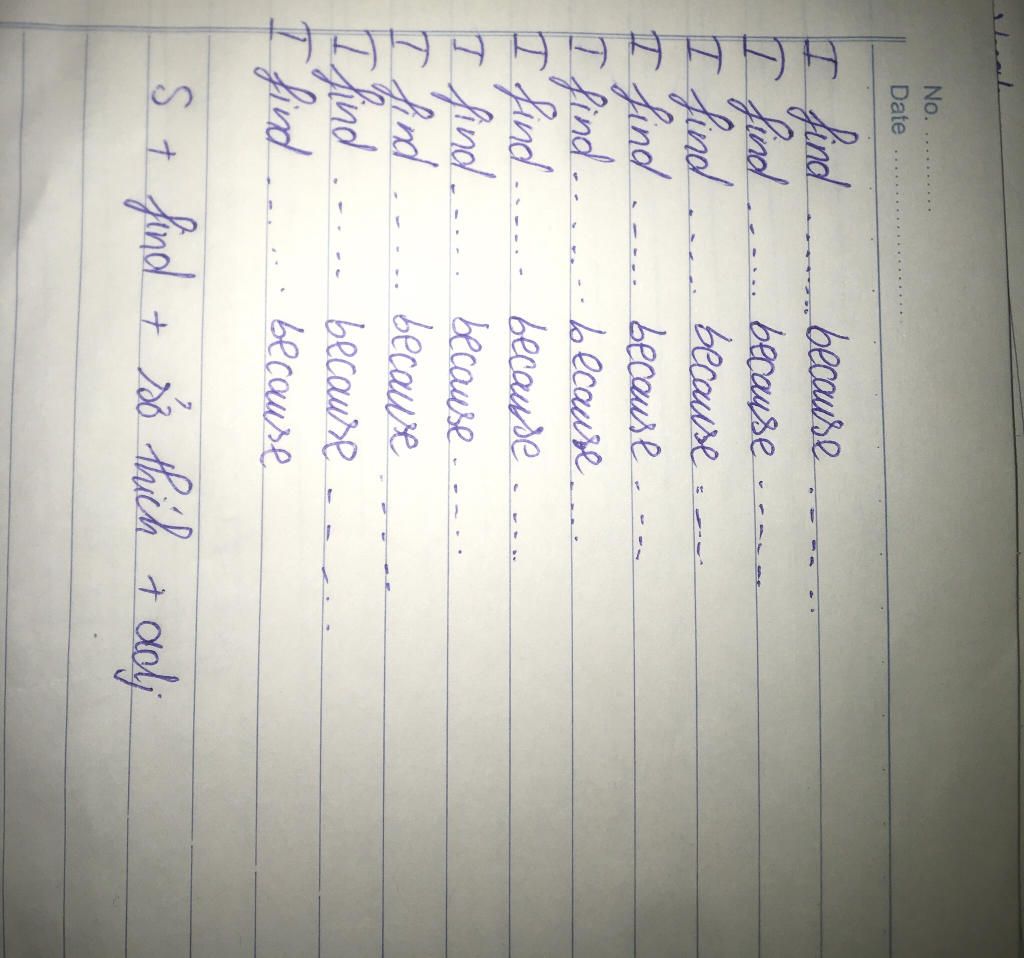 No. ............
Date ........................
I find ......... because ........
I find ...... because ......
I find ..... because .....
I find ..... because .....
I find ...... because ...
I find ..... because ....
I find ..... because .....
I find ..... because .....
I find ..... because .....
I find .... because
S + find + sở thích + adj